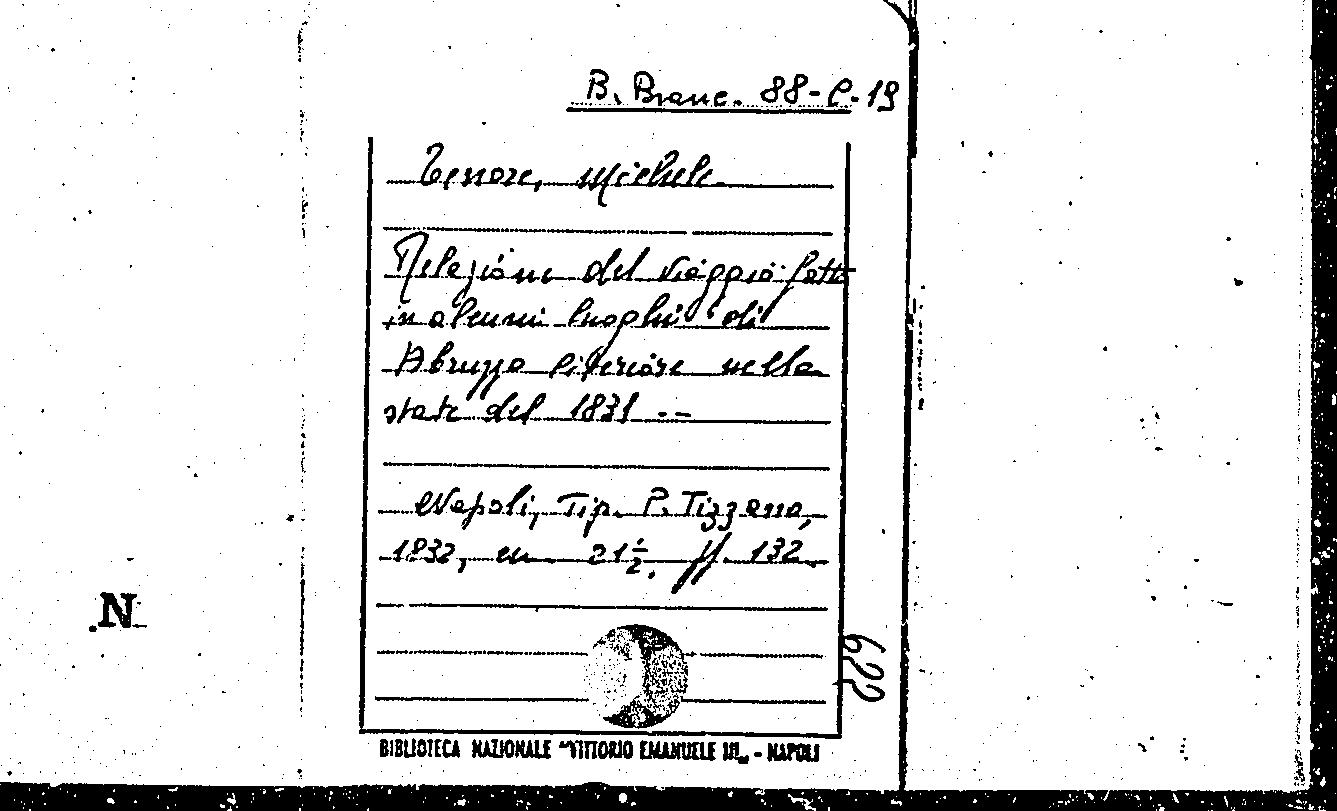 B. Branc. 88-C-19
Tenore, Michele
Relazione del viaggio fatto
in alcuni luoghi di
Abruzzo Citeriore nella
state del 1831 --
Napoli, Tip. P. Tizzano,
1832, cm. 21½. ff. 132.
622
N
BIBLIOTECA NAZIONALE "VITTORIO EMANUELE III„ - NAPOLI